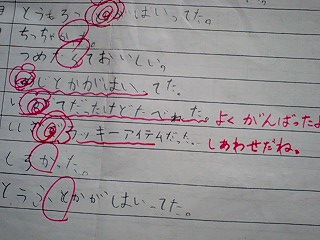 とうもろっ がはいってた。
ちっちゃかた。
つめたくておいしい。
じとかがはいってた。
てたけどたべれた。よくがんばったよ
ッキーアイテムだった。しあわせだね。
しろかった。
とうふとかがはいってた。